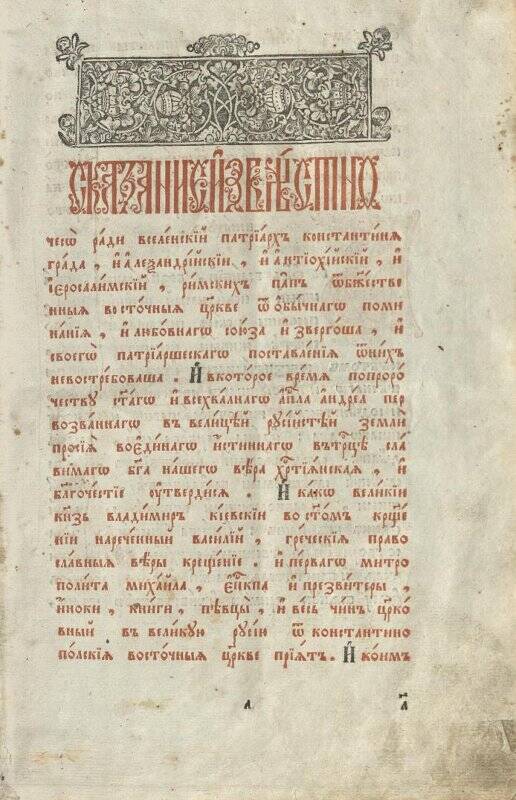 сказание извѣстно
чесѡ̀ ра́ди вселе́нскїй патрїа́рхъ константи́на
гра́да , и҆ а҆леѯандрі́йскїй , и҆ а҆нтїохі́йскїй , и҆
і҆єросали́мскїй , ри́мскихъ па́пъ ѿ бж҃е́ств\е
нныѧ восто́чныѧ цр҃кве ѿ ѻ҆бы́чнагѡ поми
на́нїѧ , и҆ любо́внагѡ сою́за и҆зверго́ша , и҆
своегѡ̀ патрїа́ршескагѡ поставле́нїѧ ѿ ни́хъ
невостре́боваша . И҆ вкото́рое вре́мѧ попроро́
честву ст҃а́гѡ и҆ всехва́лнагѡ а҆пⷭ҇ла а҆ндре́а пер
возва́ннагѡ въ вели́цѣй русі́йстѣй землѝ
просїѧ̀ воеди́нагѡ и҆́стиннагѡ въ трⷪ҇цѣ сла́
вимагѡ бг҃а на́шегѡ вѣ́ра хрⷭ҇тїѧ́нскаѧ , и҆
бл҃гоче́стїе ᲂу҆тверди́сѧ . И҆ ка́кѡ вели́кїи
кн҃зь влади́миръ кі́евскїи во ст҃о́мъ крⷳ҇щ҃е
нїи нарече́нныи васи́лїй , гре́ческїѧ право
сла́вныѧ вѣ́ры креще́нїе . и҆ пе́рвагѡ митро
поли́та миха́ила , є҆пⷭ҇кпа и҆ презви́теры ,
и҆́ноки , кни́ги , пѣвцы̀ , и҆ ве́сь чи́нъ цр҃ко́
вный въ вели́кую русі́ю ѿ константино
по́лскїѧ восто́чныѧ цр҃кве прїѧ́тъ . И҆ кои́мъ
л а҃